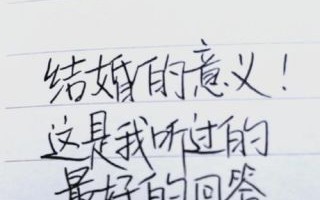 结婚的意义！
这是我听过的
最好的回答